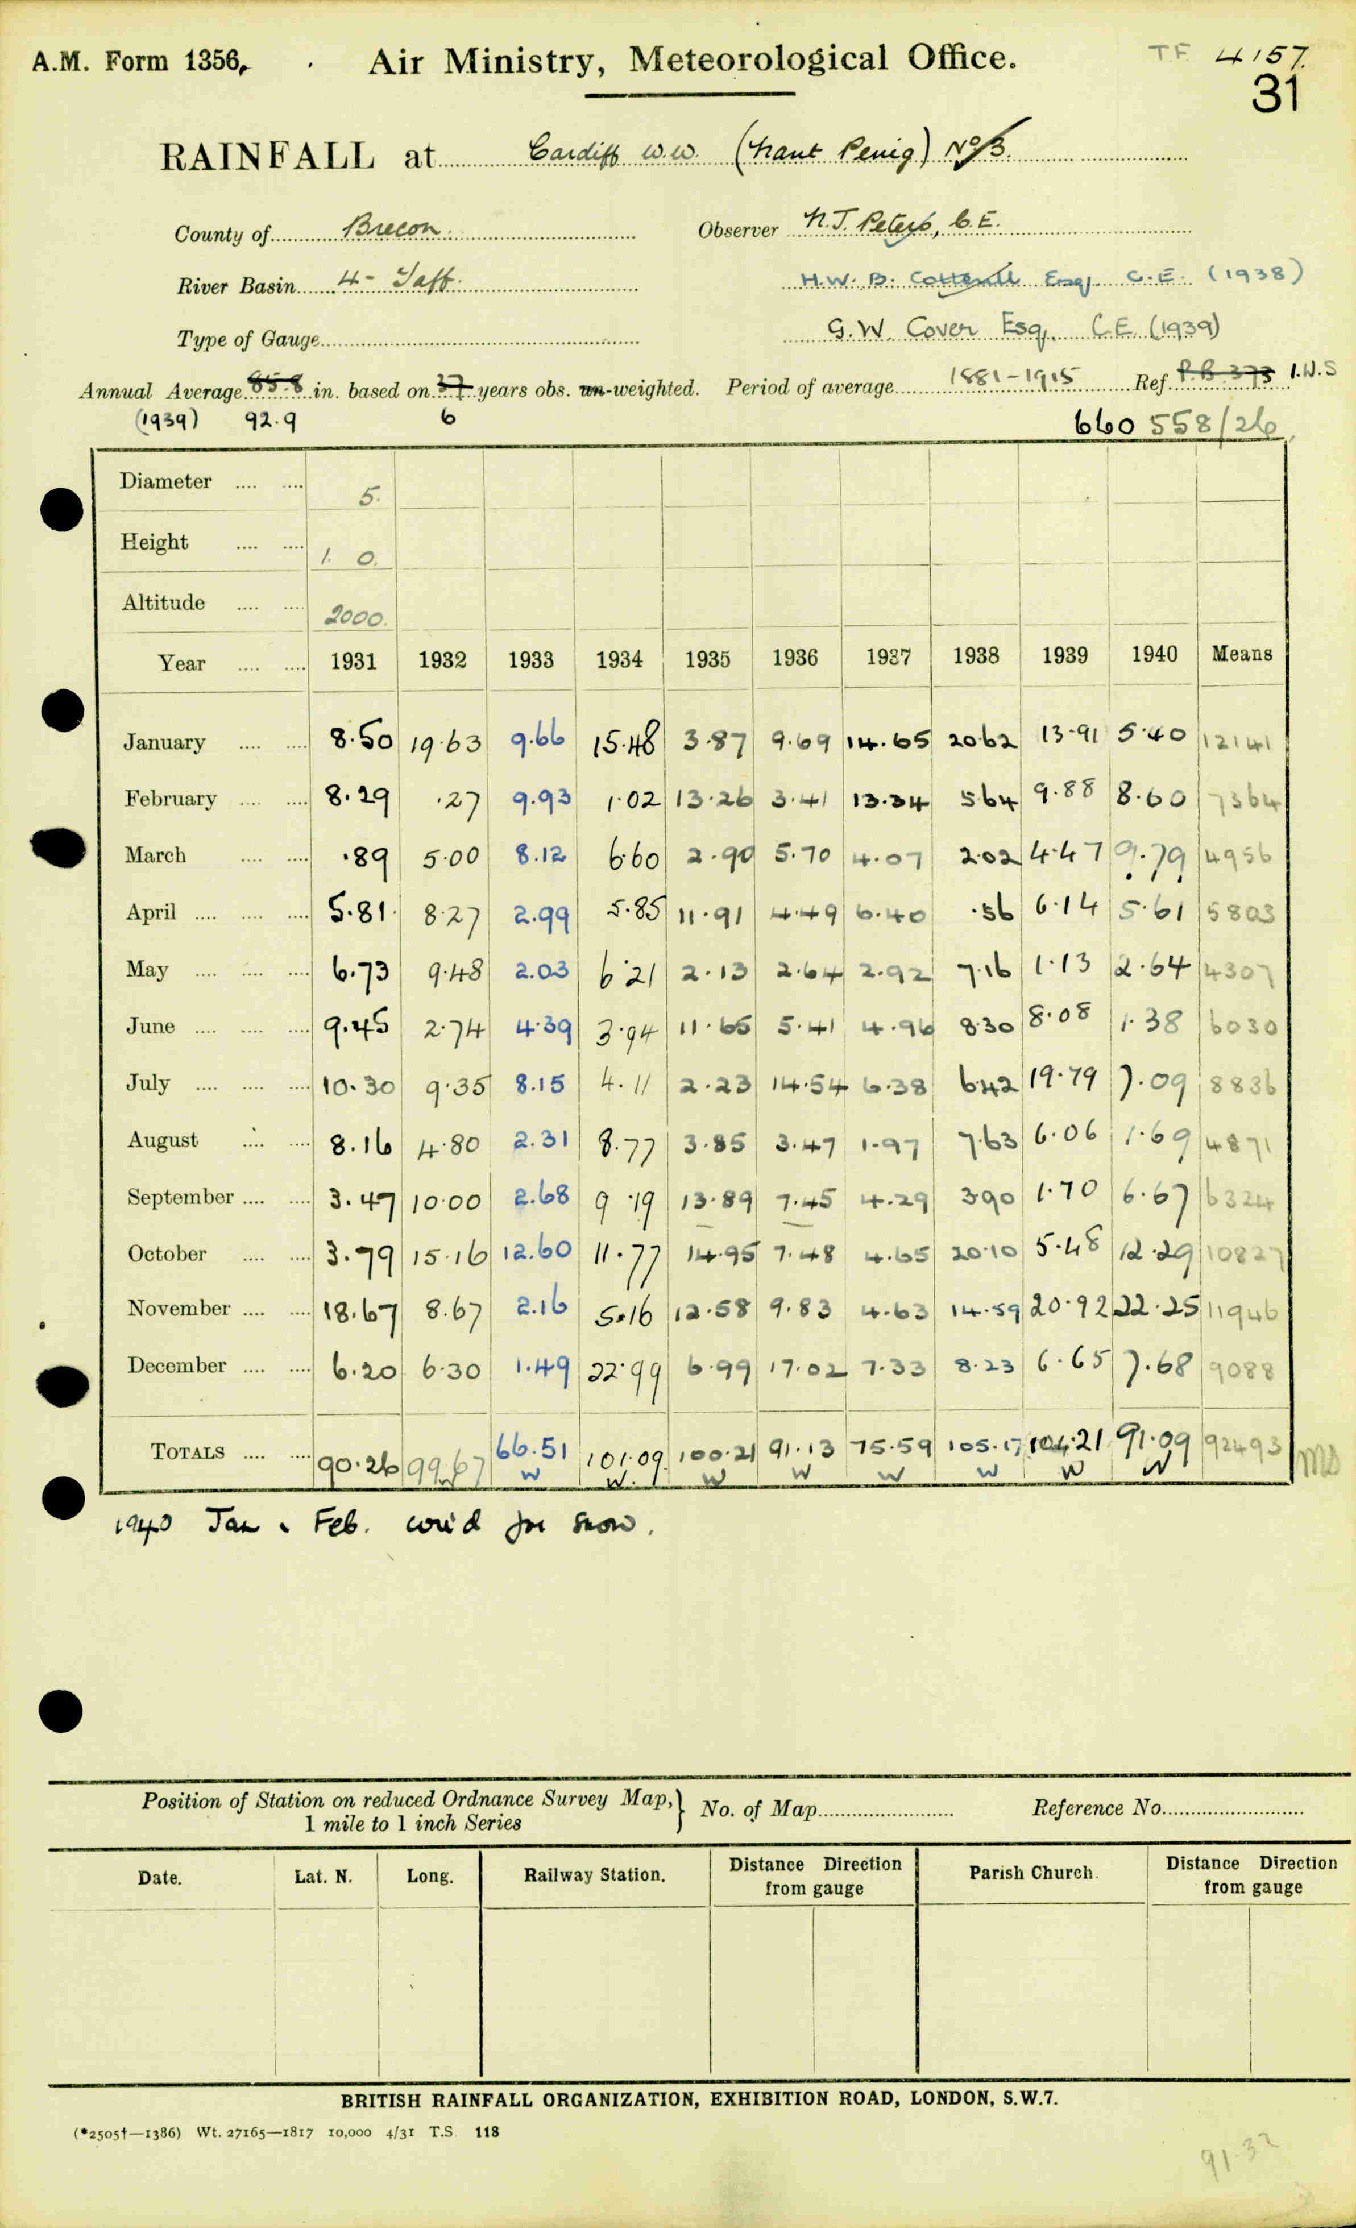 A.M. Form 1356. Air Ministry, Meteorological Office. TF 4157.
31
RAINFALL at Cardiff W.W. (Nant Penig) No 3.
County of Brecon. Observer N.J. Peters, C.E.
River Basin 4 - Taff. H.W. B. Cotterill Esq. C.E. (1938)
Type of Gauge G.W. Cover Esq. C.E. (1939)
Annual Average 85.8 in. based on 37 years obs. un-weighted. Period of average 1881-1915 Ref. P.B. 373 I.W.S
(1939) 92.9 6 660 558/26
Diameter 5.
Height 1. 0.
Altitude 2000.
Year 1931 1932 1933 1934 1935 1936 1937 1938 1939 1940 Means
January 8.50 19.63 9.66 15.48 3.87 9.69 14.65 20.62 13.91 5.40 12141
February 8.29 .27 9.93 1.02 13.26 3.41 13.34 5.64 9.88 8.60 7364
March .89 5.00 8.12 6.60 2.90 5.70 4.07 2.02 4.47 9.79 4956
April 5.81 8.27 2.99 5.85 11.91 4.49 6.40 .56 6.14 5.61 5803
May 6.73 9.48 2.03 6.21 2.13 2.64 2.92 7.16 1.13 2.64 4307
June 9.45 2.74 4.39 3.94 11.65 5.41 4.96 8.30 8.08 1.38 6030
July 10.30 9.35 8.15 4.11 2.23 14.54 6.38 6.42 19.79 7.09 8836
August 8.16 4.80 2.31 8.77 3.85 3.47 1.97 7.63 6.06 1.69 4871
September 3.47 10.00 2.68 9.19 13.89 7.45 4.29 3.90 1.70 6.67 6324
October 3.79 15.16 12.60 11.77 14.95 7.48 4.65 20.10 5.48 12.29 10827
November 18.67 8.67 2.16 5.16 12.58 9.83 4.63 14.59 20.92 22.25 11946
December 6.20 6.30 1.49 22.99 6.99 17.02 7.33 8.23 6.65 7.68 9088
TOTALS 90.26 99.67 66.51 101.09 100.21 91.13 75.59 105.17 104.21 91.09 92493 MS
W W W W W W W W W
1940 Jan & Feb. cor'd for snow.
Position of Station on reduced Ordnance Survey Map,} No. of Map Reference No.
1 mile to 1 inch Series
Date. Lat. N. Long. Railway Station. Distance Direction from gauge Parish Church. Distance Direction from gauge
BRITISH RAINFALL ORGANIZATION, EXHIBITION ROAD, LONDON, S.W.7.
(*2505†—1386) Wt. 27165—1817 10,000 4/31 T.S. 118
91.32